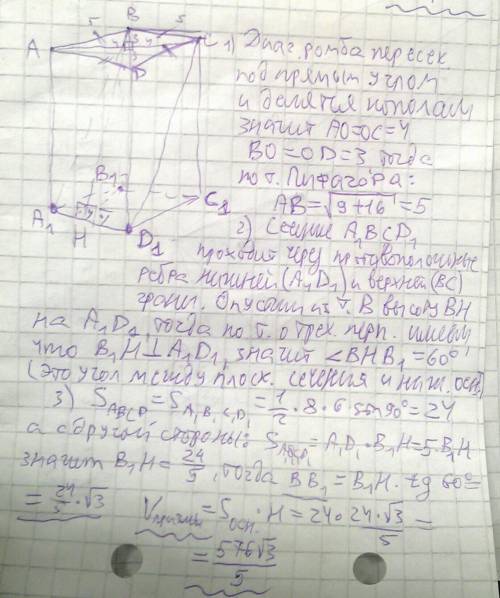 B
5
5
A
4
4
3
3
C
D
B₁
A₁
H
D₁
C₁
1) Диаг. ромба пересек.
под прямым углом
и делятся пополам
значит AO=OC=4
BO=OD=3 тогда
по т. Пифагора:
AB=√9+16=5
2) Сечение A₁BCD₁
проходит через противоположные
ребра нижней (A₁D₁) и верхней (BC)
грани. Опустим из т. B высоту BH
на A₁D₁, тогда по т. о трех перп. имеем
что B₁H⊥A₁D₁, значит ∠BHB₁=60°
(Это угол между плоск. сечения и ниж. осн.)
3) S_ABCD=S_A₁B₁C₁D₁=1/2·8·6 sin90°=24
а с другой стороны: =A₁D₁·B₁H=5·B₁H
значит B₁H=24/5, тогда BB₁=B₁H·tg 60°=
=24/5·√3 V призмы=S осн.·H=24·24·√3/5=
=576√3/5